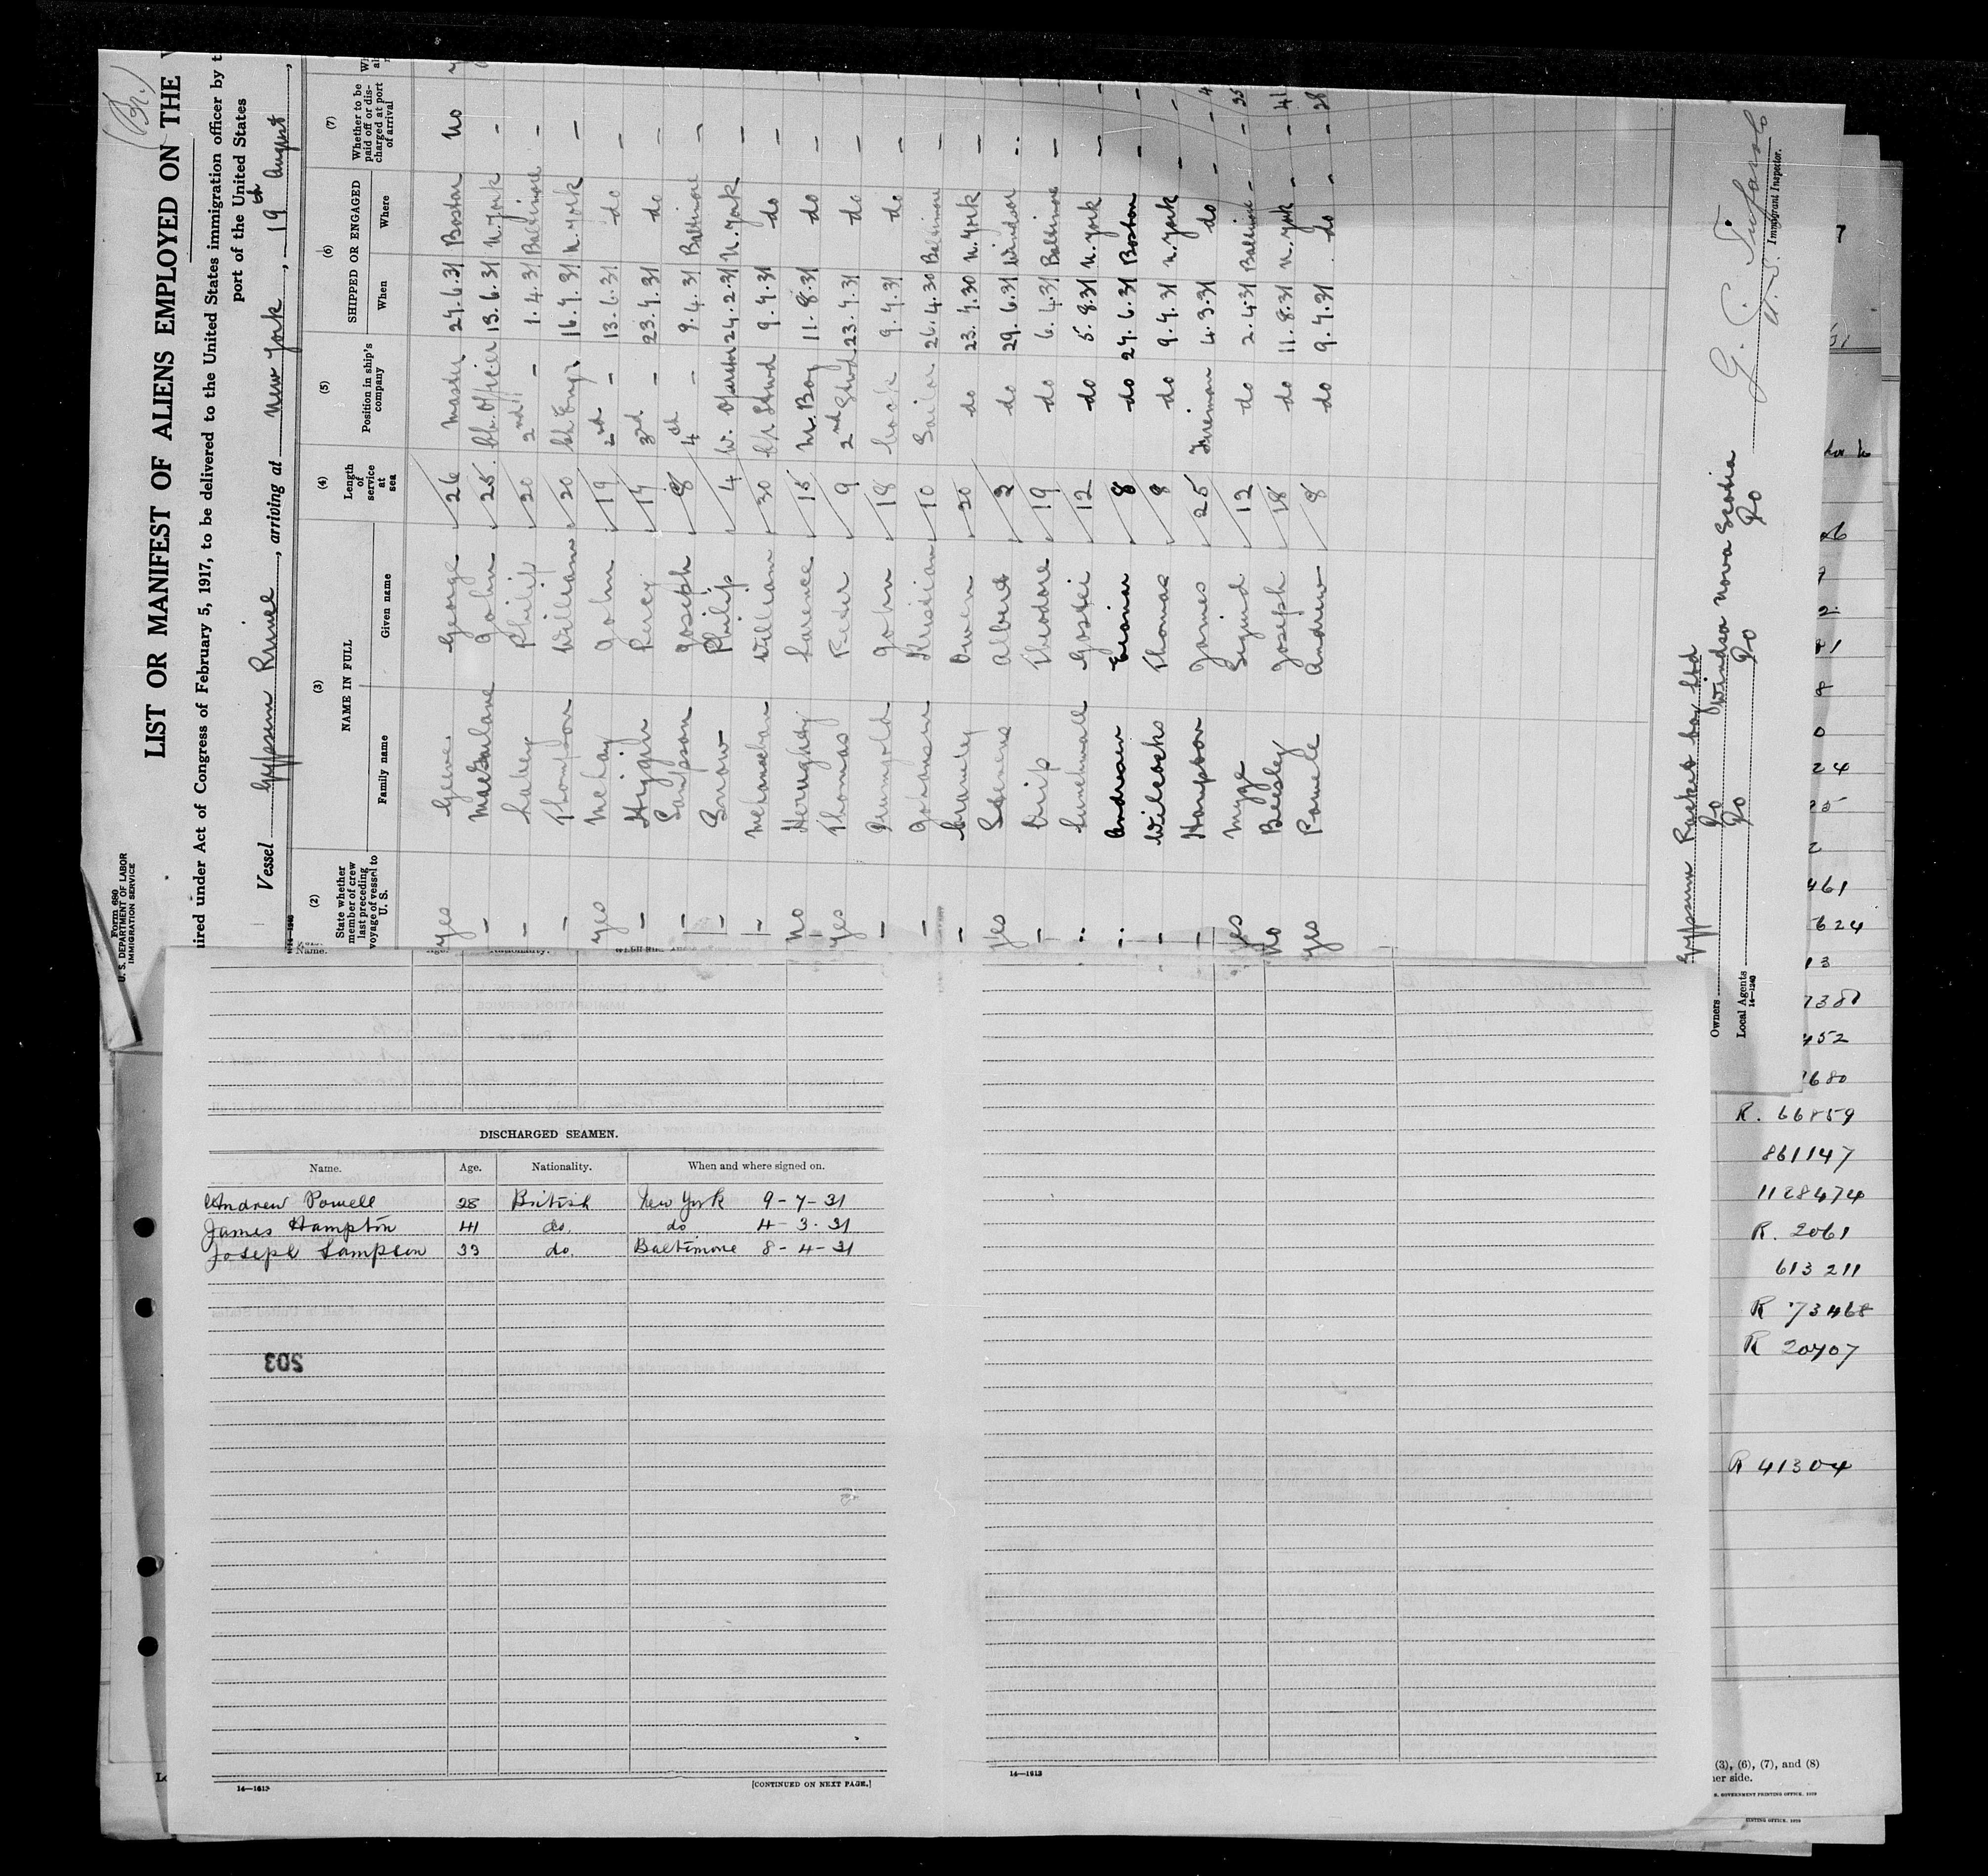 (Br.)
LIST OR MANIFEST OF ALIENS EMPLOYED ON THE
uired under Act of Congress of February 5, 1917, to be delivered to the United States immigration officer by t
port of the United States
Form 680
U. S. DEPARTMENT OF LABOR
IMMIGRATION SERVICE
Vessel Gypsum Prince, arriving at New York, 19th August,
14—1240
(2) (3) (4) (5) (6) (7)
State whether member of crew last preceding voyage of vessel to U. S.
NAME IN FULL
Family name Given name
Length of service at sea
Position in ship's company
SHIPPED OR ENGAGED
When Where
Whether to be paid off or discharged at port of arrival
yes George 26 Master 27.6.31 Boston No
- MacFarlane John 25 Ch. Officer 13.6.31 N. York -
- Philip 20 2nd " 1.4.31 Baltimore -
- Thompson William 20 Ch Engr. 16.7.31 N. York -
yes McKay John 19 2nd - 13.6.31 do -
- Higgin Percy 17 3rd - 23.7.31 do -
- Sampson Joseph 8 4th - 9.4.31 Baltimore -
- Snow Philip 4 W. Operator 24.2.31 N. York -
- William 30 Ch Stwd 9.7.31 do -
no 15 M. Boy 11.8.31 do -
yes Thomas Peter 9 2nd Stwd 23.7.31 do -
- Drumgold John 18 Cook 9.7.31 do -
- Kristian 10 Sailor 26.4.30 Baltimore -
- Owen 20 do 23.7.30 N. York -
yes Stevens Albert 2 do 29.6.31 Windsor ..
- Theodore 19 do 6.4.31 Baltimore -
.. 12 do 5.8.31 N. York -
.. Andresen Einar 8 do 27.6.31 Boston -
- Wilcocks Thomas 8 do 9.7.31 N. York -
- Hampton James 25 Fireman 4.3.31 do - 4
yes Mygge Sigurd 12 do 2.4.31 Baltimore - 35
no Beesley Joseph 18 do 11.8.31 N. York - 41
yes Powell Andrew 8 do 9.7.31 do - 28
U. S. Immigrant Inspector.
Gypsum Packet Coy Ltd
Owners Do Windsor Nova Scotia
Local Agents Do Do Do
14—1240
DISCHARGED SEAMEN.
Name. Age. Nationality. When and where signed on.
Andrew Powell 28 British New York 9-7-31
James Hampton 41 do. do 4-3-31
Joseph Sampson 33 do. Baltimore 8-4-31
503
14—1613
[CONTINUED ON NEXT PAGE.]
14—1613
7
24
461
624
13
452
R. 66859
861147
1128474
R. 2061
613211
R 73468
R 20707
R 41304
(3), (6), (7), and (8)
her side.
S. GOVERNMENT PRINTING OFFICE, 1929